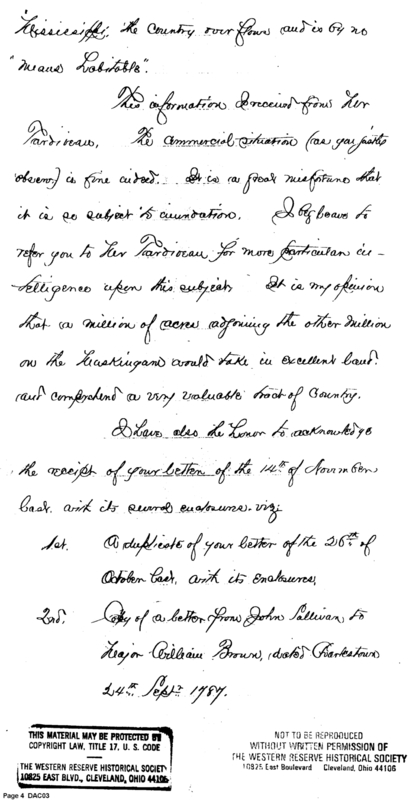 Mississippi, the Country over flows and is by no
"means Habitable".
This information I received from Mr
Tardiveau. The commercial situation (as you justly
observe) is fine indeed. It is a great misfortune that
it is so subject to inundation. I beg leave to
refer you to Mr Tardiveau for more particular in-
telligence upon this subject. It is my opinion
that a million of acres adjoining the other million
on the Muskingam would take in excellent land.
and comprehend a very valuable tract of Country.
I have also the Honor to acknowledge
the receipt of your letter of the 14th of November
last. with its several enclosures. viz:
1st. A duplicate of your letter of the 26th of
October last, with its enclosures,
2nd. Copy of a letter from John Sullivan to
Major William Brown, dated Charlestown
24th Septr 1787.
THIS MATERIAL MAY BE PROTECTED BY
COPYRIGHT LAW, TITLE 17, U. S. CODE
THE WESTERN RESERVE HISTORICAL SOCIETY
10825 EAST BLVD., CLEVELAND, OHIO 44106
NOT TO BE REPRODUCED
WITHOUT WRITTEN PERMISSION OF
THE WESTERN RESERVE HISTORICAL SOCIETY
10825 East Boulevard Cleveland, Ohio 44106
Page 4 DAC03